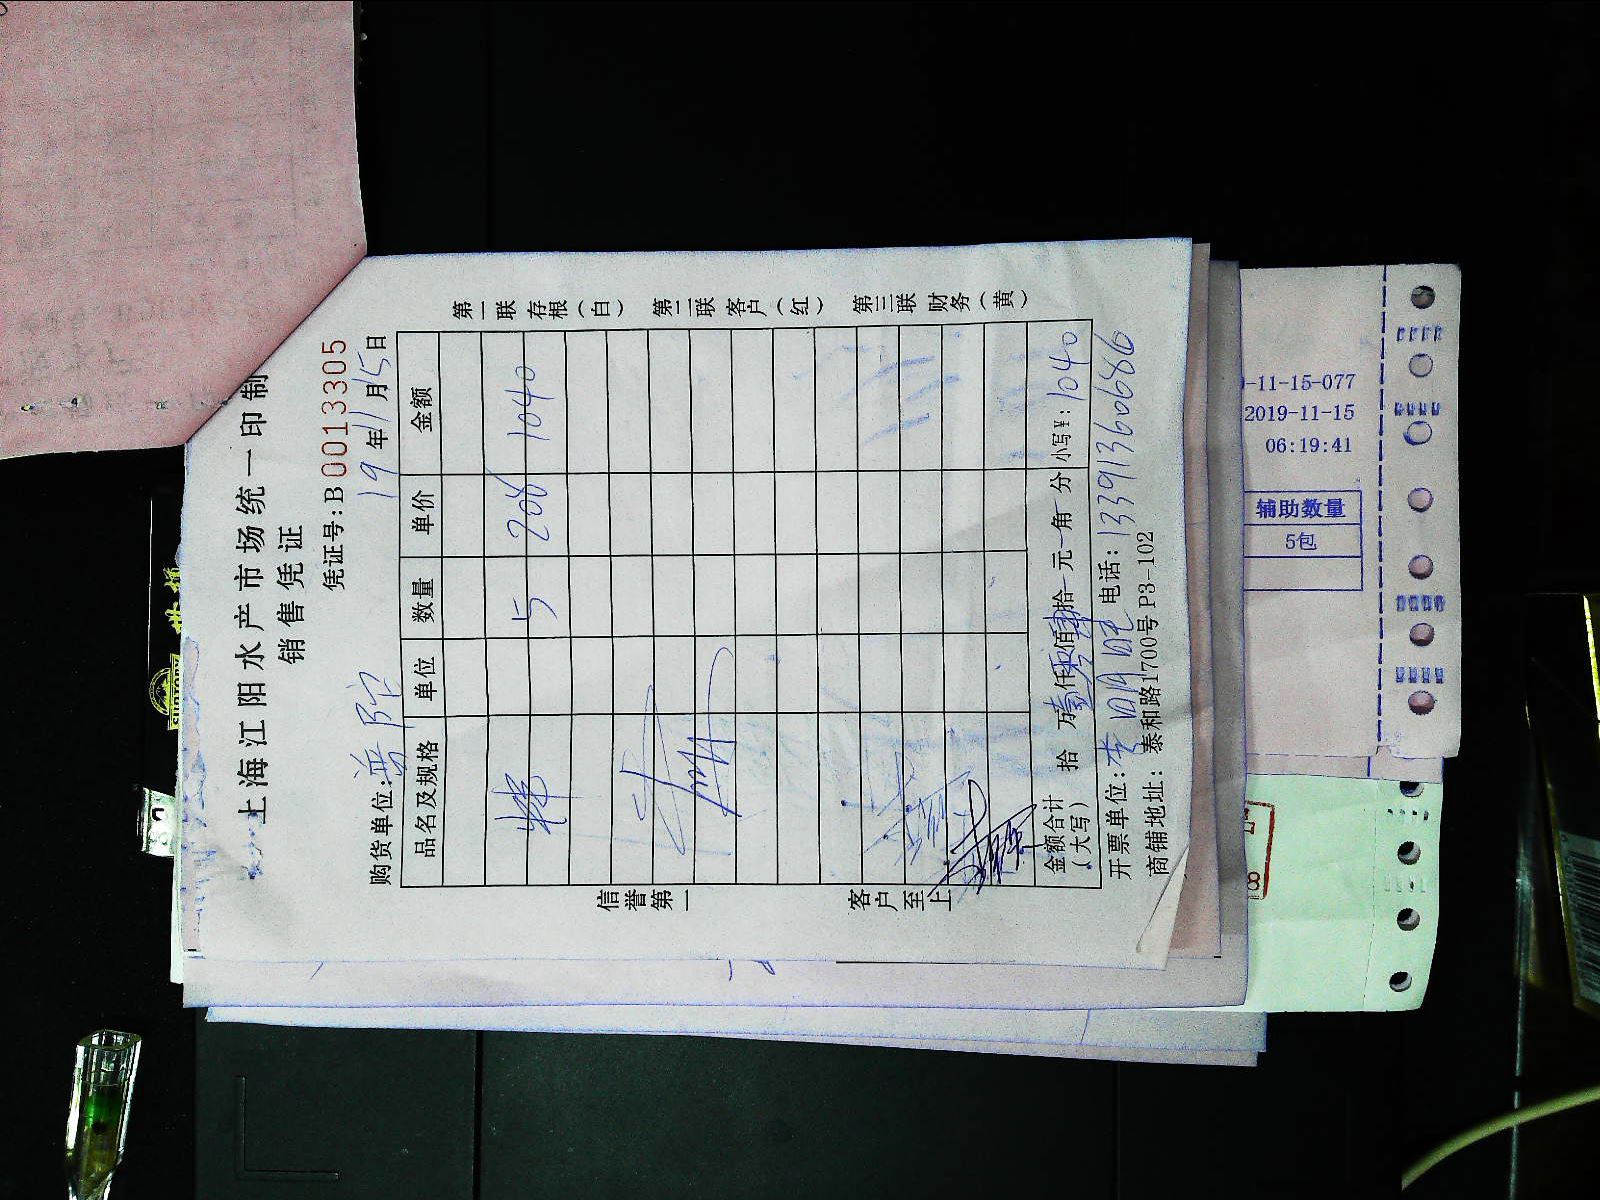 上海江阳水产市场统一印制
销售凭证
凭证号:B0013305
购货单位:普陀 19年11月15日
品名及规格 单位 数量 单价 金额
5 208 1040
金额合计
(大写) 拾 万 壹仟 零佰 肆拾 元 角 分 小写¥:1040
开票单位: 电话:13391360686
商铺地址:泰和路1700号P3-102
信誉第一
客户至上
第一联 存根(白)
第二联 客户(红)
第三联 财务(黄)
-11-15-077
2019-11-15
06:19:41
辅助数量
5包
SUNTORY